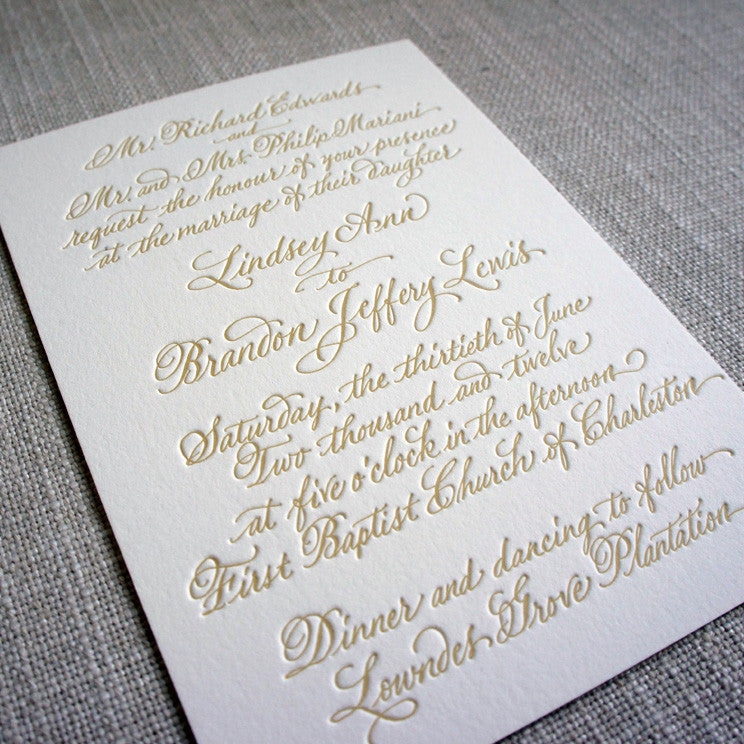 Mr. Richard Edwards
and
Mr. and Mrs. Philip Mariani
request the honour of your presence
at the marriage of their daughter
Lindsey Ann
to
Brandon Jeffery Lewis
Saturday, the thirtieth of June
Two thousand and twelve
at five o'clock in the afternoon
First Baptist Church of Charleston
Dinner and dancing to follow
Lowndes Grove Plantation